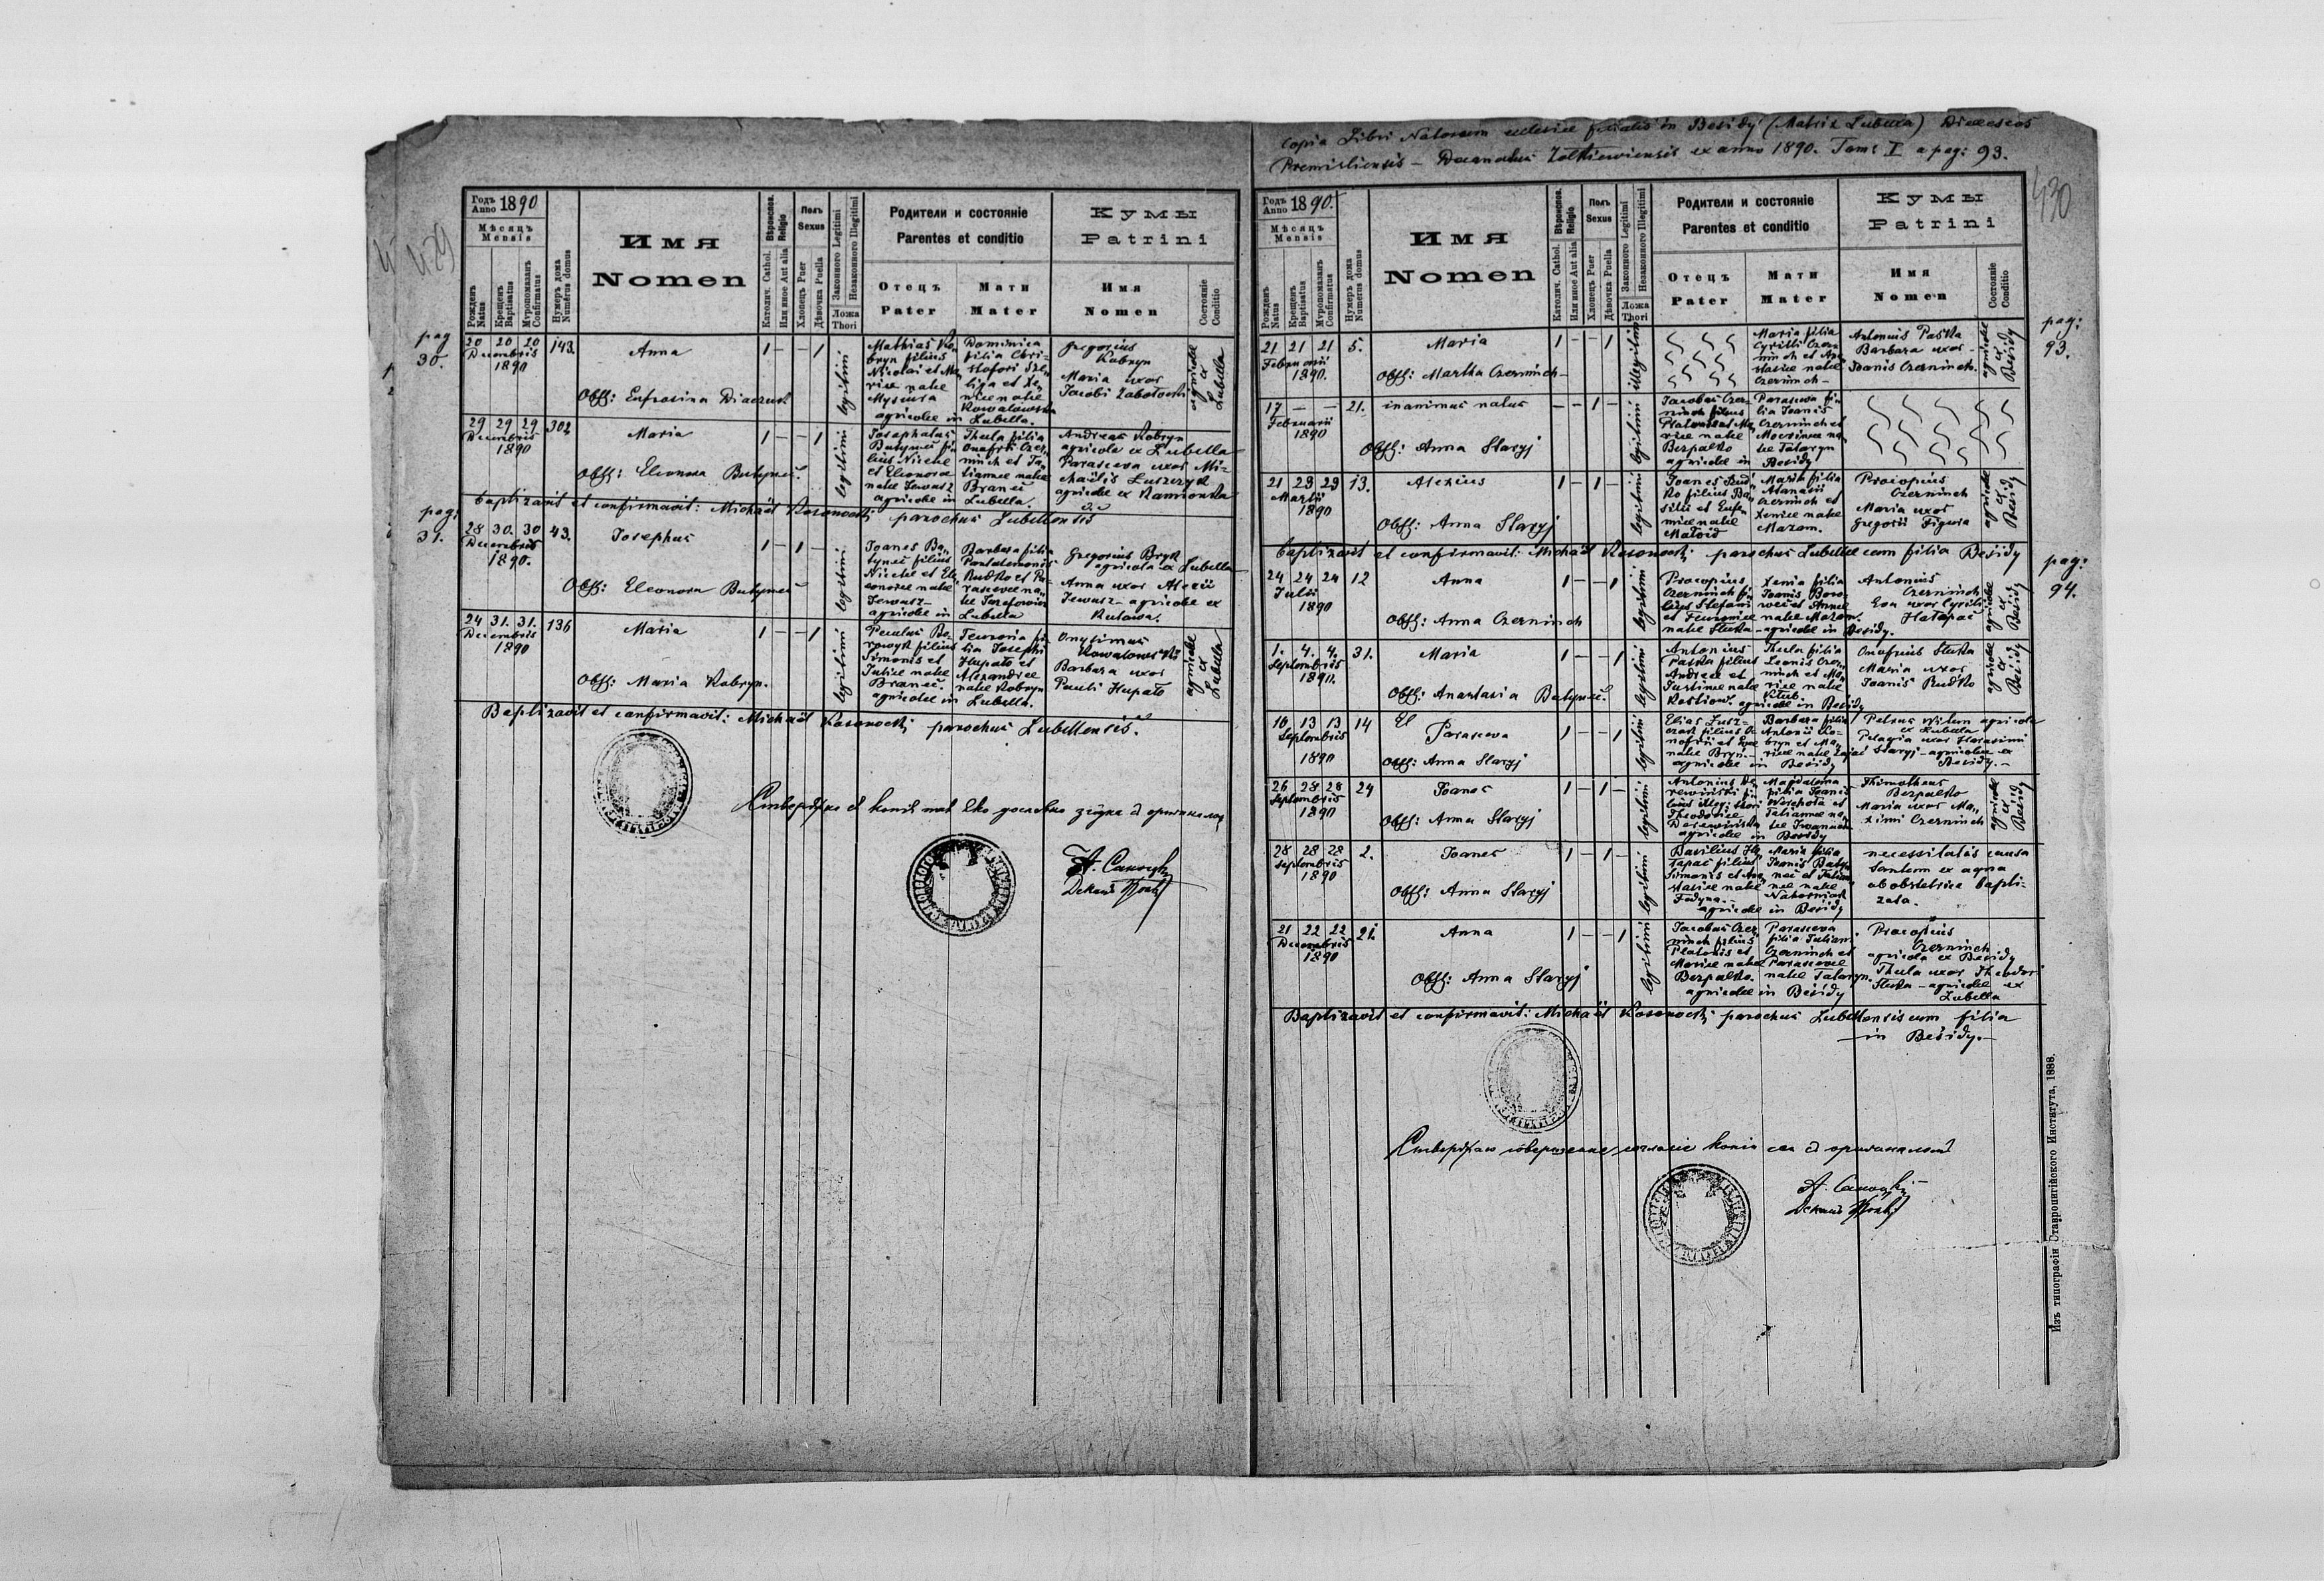 429
Годъ Anno 1890
Мѣсяцъ Mensis
Рожденъ Natus
Крещенъ Baptisatus
Мѵропомазанъ Confirmatus
Нумеръ дома Numerus domus
Имя
Nomen
Вѣроиспов. Religio
Католич. Cathol.
Или иное Aut alia
Полъ Sexus
Хлопецъ Puer
Дѣвочка Puella
Законного Legitimi
Незаконного Illegitimi
Ложа Thori
Родители и состояніе
Parentes et conditio
Отецъ
Pater
Мати
Mater
Кумы
Patrini
Имя
Nomen
Состояніе
Conditio
pag 30.
20 20 20 Decembris 1890
143.
Anna
1 – – 1
legitimi
Obst: Eufrosina Diaczuk
Mathias Kobryn filius Nicolai et Mariae natae Myscura
Dominica filia Christofori et Xeniae natae Kowalowska
agricolae in Lubella.
Gregorius Kobryn
Maria uxor Jacobi Zabołotski
agricolae ex Lubella
29 29 29 Decembris 1890
302
Maria
1 – – 1
legitimi
Obst: Eleonora Butyneć.
Josaphatus Butyneć filius Nicetae et Eleonorae natae Jewusz
Thecla filia Onufrii Czerninch et Tatiannae natae Braneć
agricolae in Lubella.
Andreas Kobryn agricola ex Lubella
Parasceva uxor Michaëlis Łuszczyk agricolae ex Kamionka
baptizavit et confirmavit: Michaël Kosonocki parochus Lubellensis
pag: 31.
28 30. 30 Decembris 1890.
43.
Josephus
1 – 1 –
legitimi
Obst: Eleonora Butyneć
Joanes Butyneć filius Nicetae et Eleonorae natae Jewusz
Barbara filia Pantalemonis Rudko et Parascevae natae Jozefowicz
agricolae in Lubella
Gregorius Bryk agricola ex Lubella
Anna uxor Alexii Jewusz – agricolae ex Rutawa.
24 31. 31. Decembris 1890
136
Maria
1 – – 1
legitimi
Obst: Maria Kobryn.
Paulus Borowyk filius Simonis et Juliae natae Braneć.
Teuronia filia Josephi Hupało et Alexandrae natae Kobryn
agricolae in Lubella.
Onysimus Kowalowski
Barbara uxor Pauli Hupało
agricolae ex Lubella
Baptizavit et confirmavit: Michaël Kosonocki parochus Lubellensis.
Copia Libri Natorum ecclesiae filialis in Besidy (Matrix Lubella) Dioeceseos
Premisliensis – Decanatus Zolkiewiensis ex anno 1890. Tom: I a pag: 93.
430
Годъ Anno 1890.
Мѣсяцъ Mensis
Рожденъ Natus
Крещенъ Baptisatus
Мѵропомазанъ Confirmatus
Нумеръ дома Numerus domus
Имя
Nomen
Вѣроиспов. Religio
Католич. Cathol.
Или иное Aut alia
Полъ Sexus
Хлопецъ Puer
Дѣвочка Puella
Законного Legitimi
Незаконного Illegitimi
Ложа Thori
Родители и состояніе
Parentes et conditio
Отецъ
Pater
Мати
Mater
Кумы
Patrini
Имя
Nomen
Состояніе
Conditio
pag: 93.
21 21 21 Februarii 1890.
5.
Maria
1 – – 1
illegitimi
Obst: Martha Czerninch –
Maria filia Cyrilli Czerninch et Anastasiae natae Czerninch –
Antonius Paśka
Barbara uxor Joanis Czerninch.
agricolae ex Besidy
17 – – Februarii 1890
21.
inanimus natus
– – 1 –
legitimi
Obst: Anna Staryj
Jacobus Czerninch filius Platonis et Mariae natae Bezpalko
Parasceva filia Joanis Czerninch et natae Tataryn
agricolae in Besidy
21 23 23 Martii 1890
13.
Alexius
1 – 1 –
legitimi
Obst: Anna Staryj
Joanes Rudko filius Basilii et Eufemiae natae
Maria filia Atanasii Czerninch et Xeniae natae Mazom.
Procopius Czerninch
Maria uxor Gregorii Figura
agricolae ex Besidy
baptizavit et confirmavit: Michaël Kosonocki parochus Lubellae cum filia Besidy
pag: 94.
24 24 24 Julii 1890
12
Anna
1 – – 1
legitimi
Obst: Anna Czerninch
Procopius Czerninch filius Stefani et Feuroniae natae Słuka
Xenia filia Joanis et Annae natae Mazom.
agricolae in Besidy.
Antonius Czerninch
Eva uxor Cyrilli Hałapac
agricolae ex Besidy
1. 4. 4. Septembris 1890.
31.
Maria
1 – – 1
legitimi
Obst: Anastasia Butyneć.
Antonius Paśka filius Andreae et Justinae natae
Thecla filia Leonis Czerninch et Mariae natae Kłub.
agricolae in Besidy
Onufrius Słuka
Maria uxor Joanis Rudko
agricolae ex Besidy
10 13 13 Septembris 1890
14
Parasceva
1 – – 1
legitimi
Obst: Anna Staryj
Elias filius Onofrii et Evae natae Bryn –
Barbara filia Antonii Kobryn et Mariae natae Zając
agricolae in Besidy
Petrus Witem agricola ex Lubella
Pelagia uxor Harasimi Staryj – agricolae ex Besidy. –
26 28 28 Septembris 1890
24
Joanes
1 – 1 –
legitimi
Obst: Anna Staryj
Antonius Derewinski filius illeg: thori Theodoriae Derewinska
Magdalena filia Joanis et Tatiannae natae
agricolae in Besidy
Thimotheus Bezpalko
Maria uxor Maximi Czerninch
agricolae ex Besidy
28 28 28 Septembris 1890
2.
Joanes
1 – 1 –
legitimi
Obst: Anna Staryj
Basilius Hałapac filius Simonis et Anastasiae natae Fedyna. –
Maria filia Joanis Butyneć et natae
agricolae in Besidy
necessitatis causa tantum ex aqua ab obstetrice baptizata.
21 22 22 Decembris 1890
21.
Anna
1 – – 1
legitimi
Obst: Anna Staryj
Jacobus Czerninch filius Platonis et Mariae natae Bezpalko.
Parasceva filia Juliani Czerninch et Parascevae natae Tataryn.
agricolae in Besidy
Procopius Czerninch agricola ex Besidy
Thecla uxor Theodori Słuka – agricolae ex Lubella
Baptizavit et confirmavit: Michaël Kosonocki parochus Lubellensis cum filia
in Besidy. –
Изъ типографіи Ставропигійского Института, 1888.